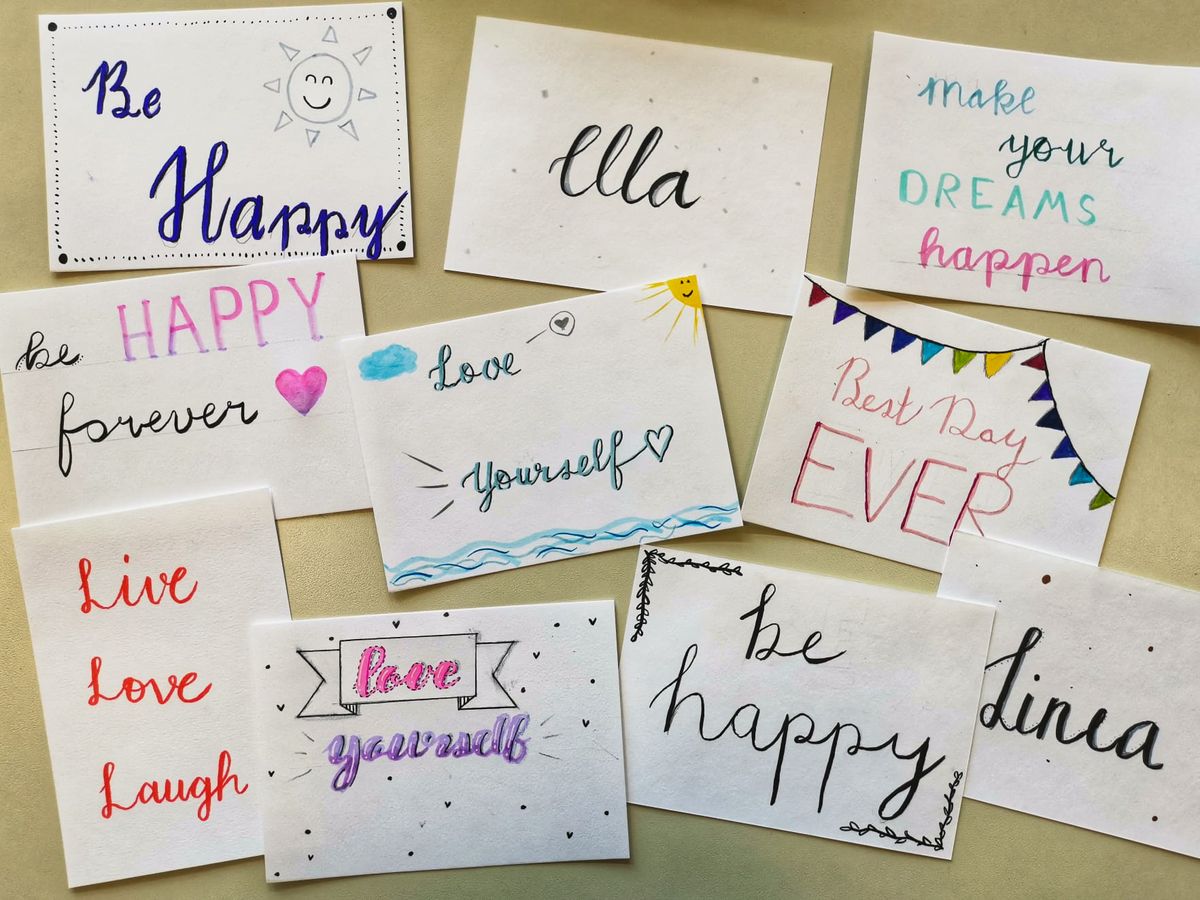 Be
Happy
Ella
make
your
DREAMS
happen
be HAPPY
forever
Love
Yourself
Best Day
EVER
Live
Love
Laugh
love
yourself
be
happy
Linea